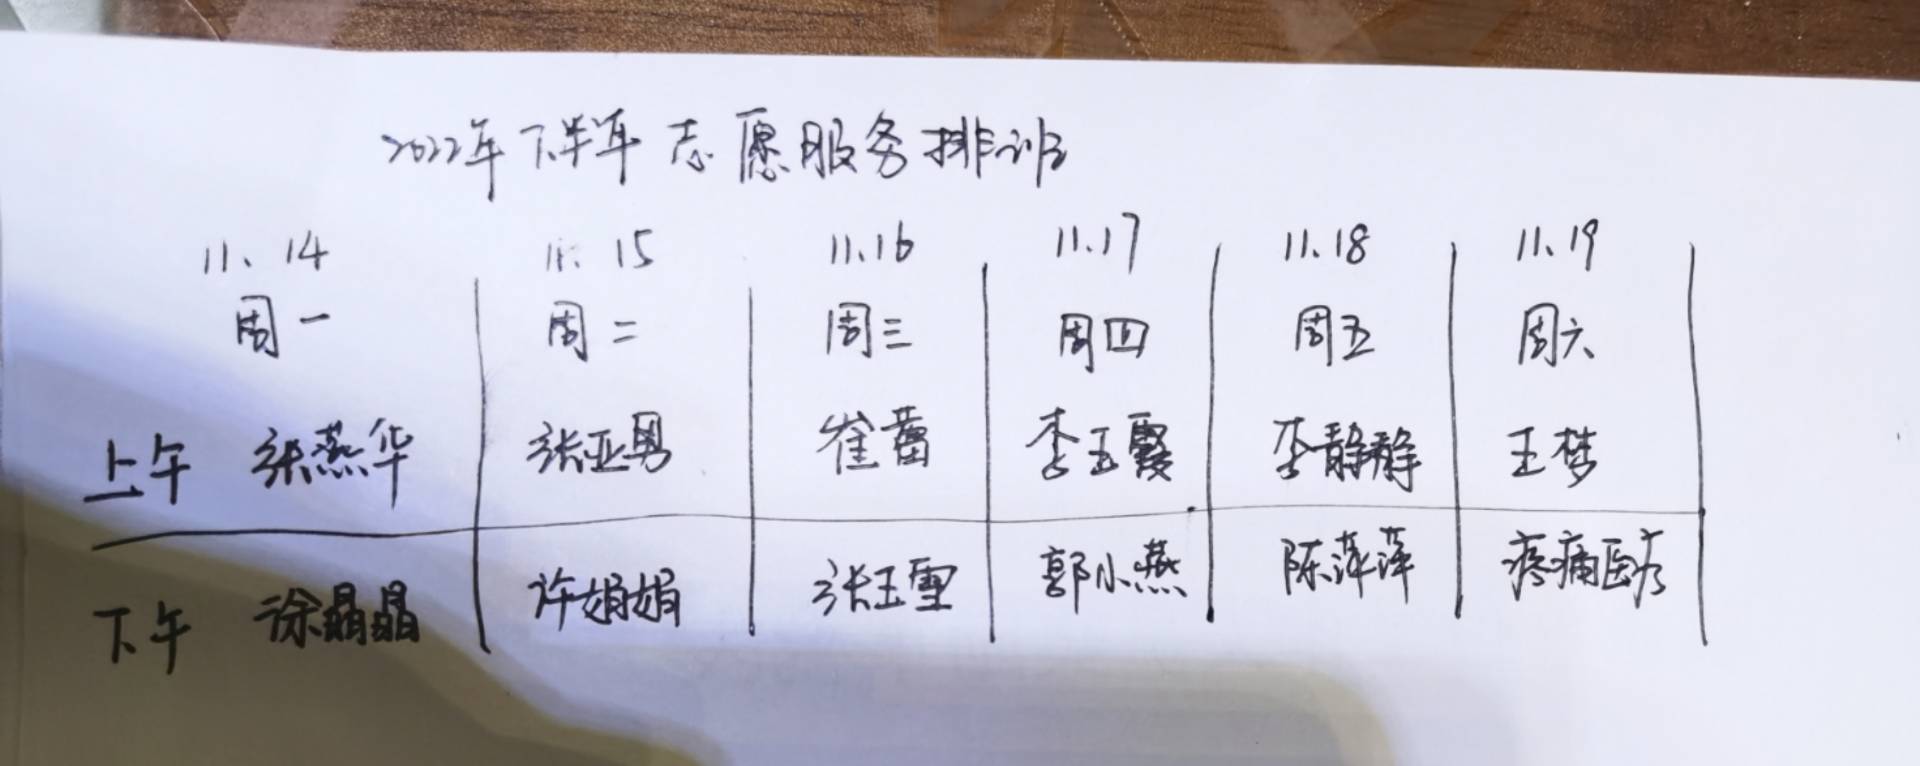 2022年下半年志愿服务排班
11.14 11.15 11.16 11.17 11.18 11.19
周一 周二 周三 周四 周五 周六
上午 张燕华 张亚男 崔蕾 李玉霞 李静静 王梦
下午 徐晶晶 许娟娟 张玉雪 郭小燕 陈萍萍 疼痛医疗